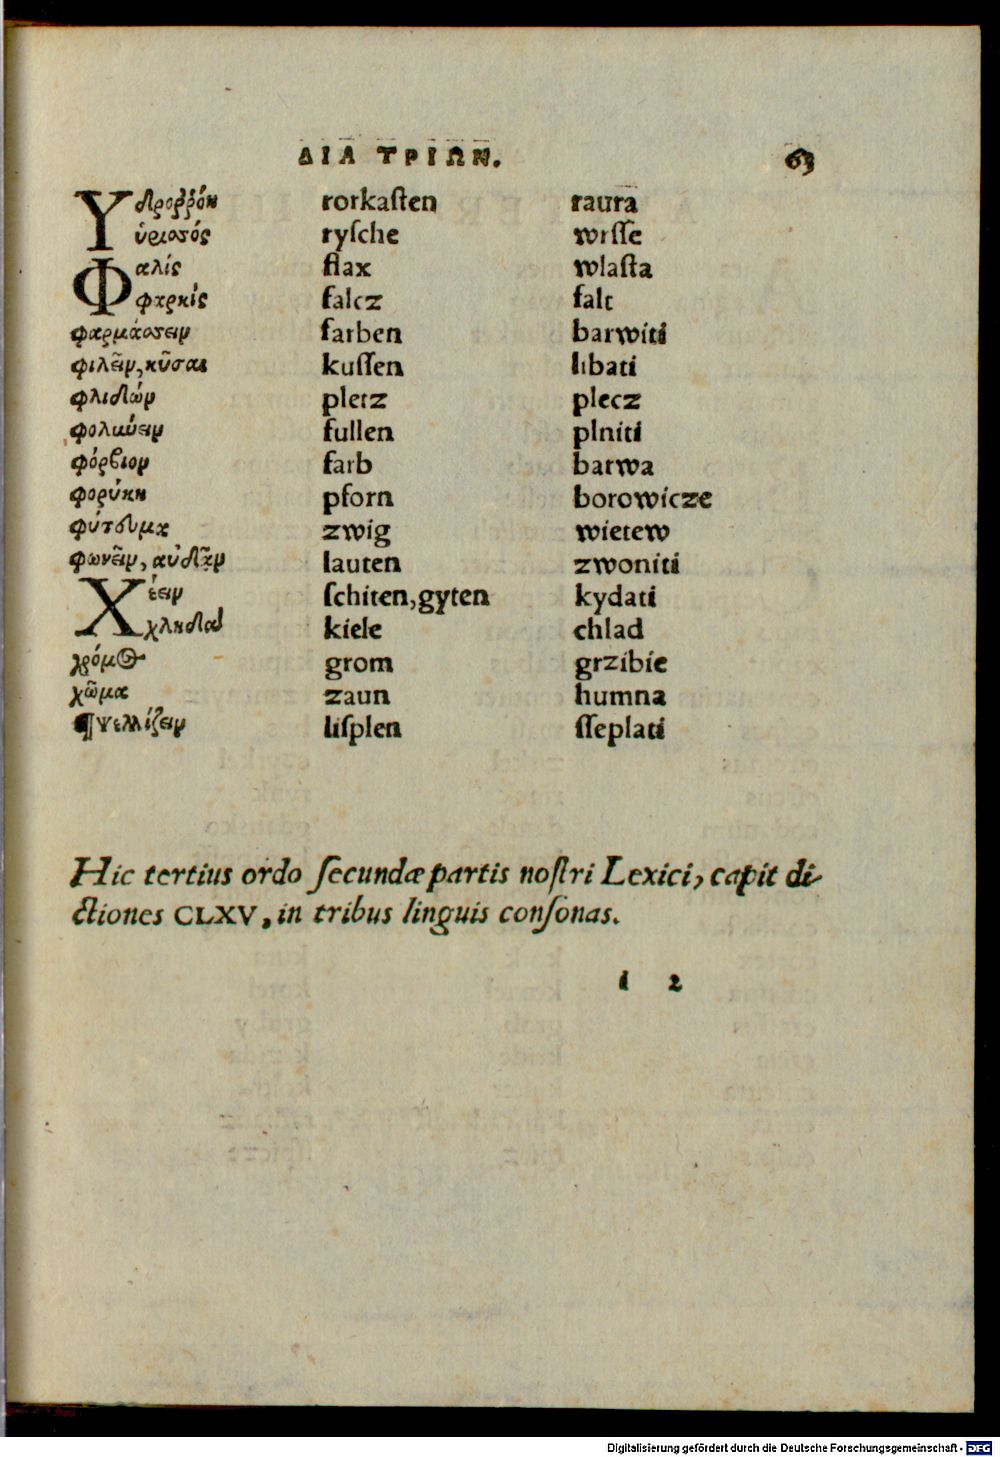 ΔΙΑ ΤΡΙΩΝ. 63
Υδρορρόη rorkaſten raura
ὑριατός ryſche wrſſe
Φαλίς flax wlaſta
φαρκίς falcz falt
φαρμάσσειν farben barwiti
φιλεῖν, κῦσαι kuſſen libati
φλιδών pletz plecz
φολκύειν fullen plniti
φόρβιον farb barwa
φορύκη pforn borowicze
φύτευμα zwig wietew
φωνεῖν, αὐδᾶν lauten zwoniti
Χέειν ſchiten, gyten kydati
χληδαὶ kiele chlad
χρόμος grom grzibie
χῶμα zaun humna
¶ Ψελλίζειν liſplen ſſeplati
Hic tertius ordo ſecundæ partis noſtri Lexici, capit di-
ctiones CLXV, in tribus linguis conſonas.
i 2
Digitalisierung gefördert durch die Deutsche Forschungsgemeinschaft - DFG